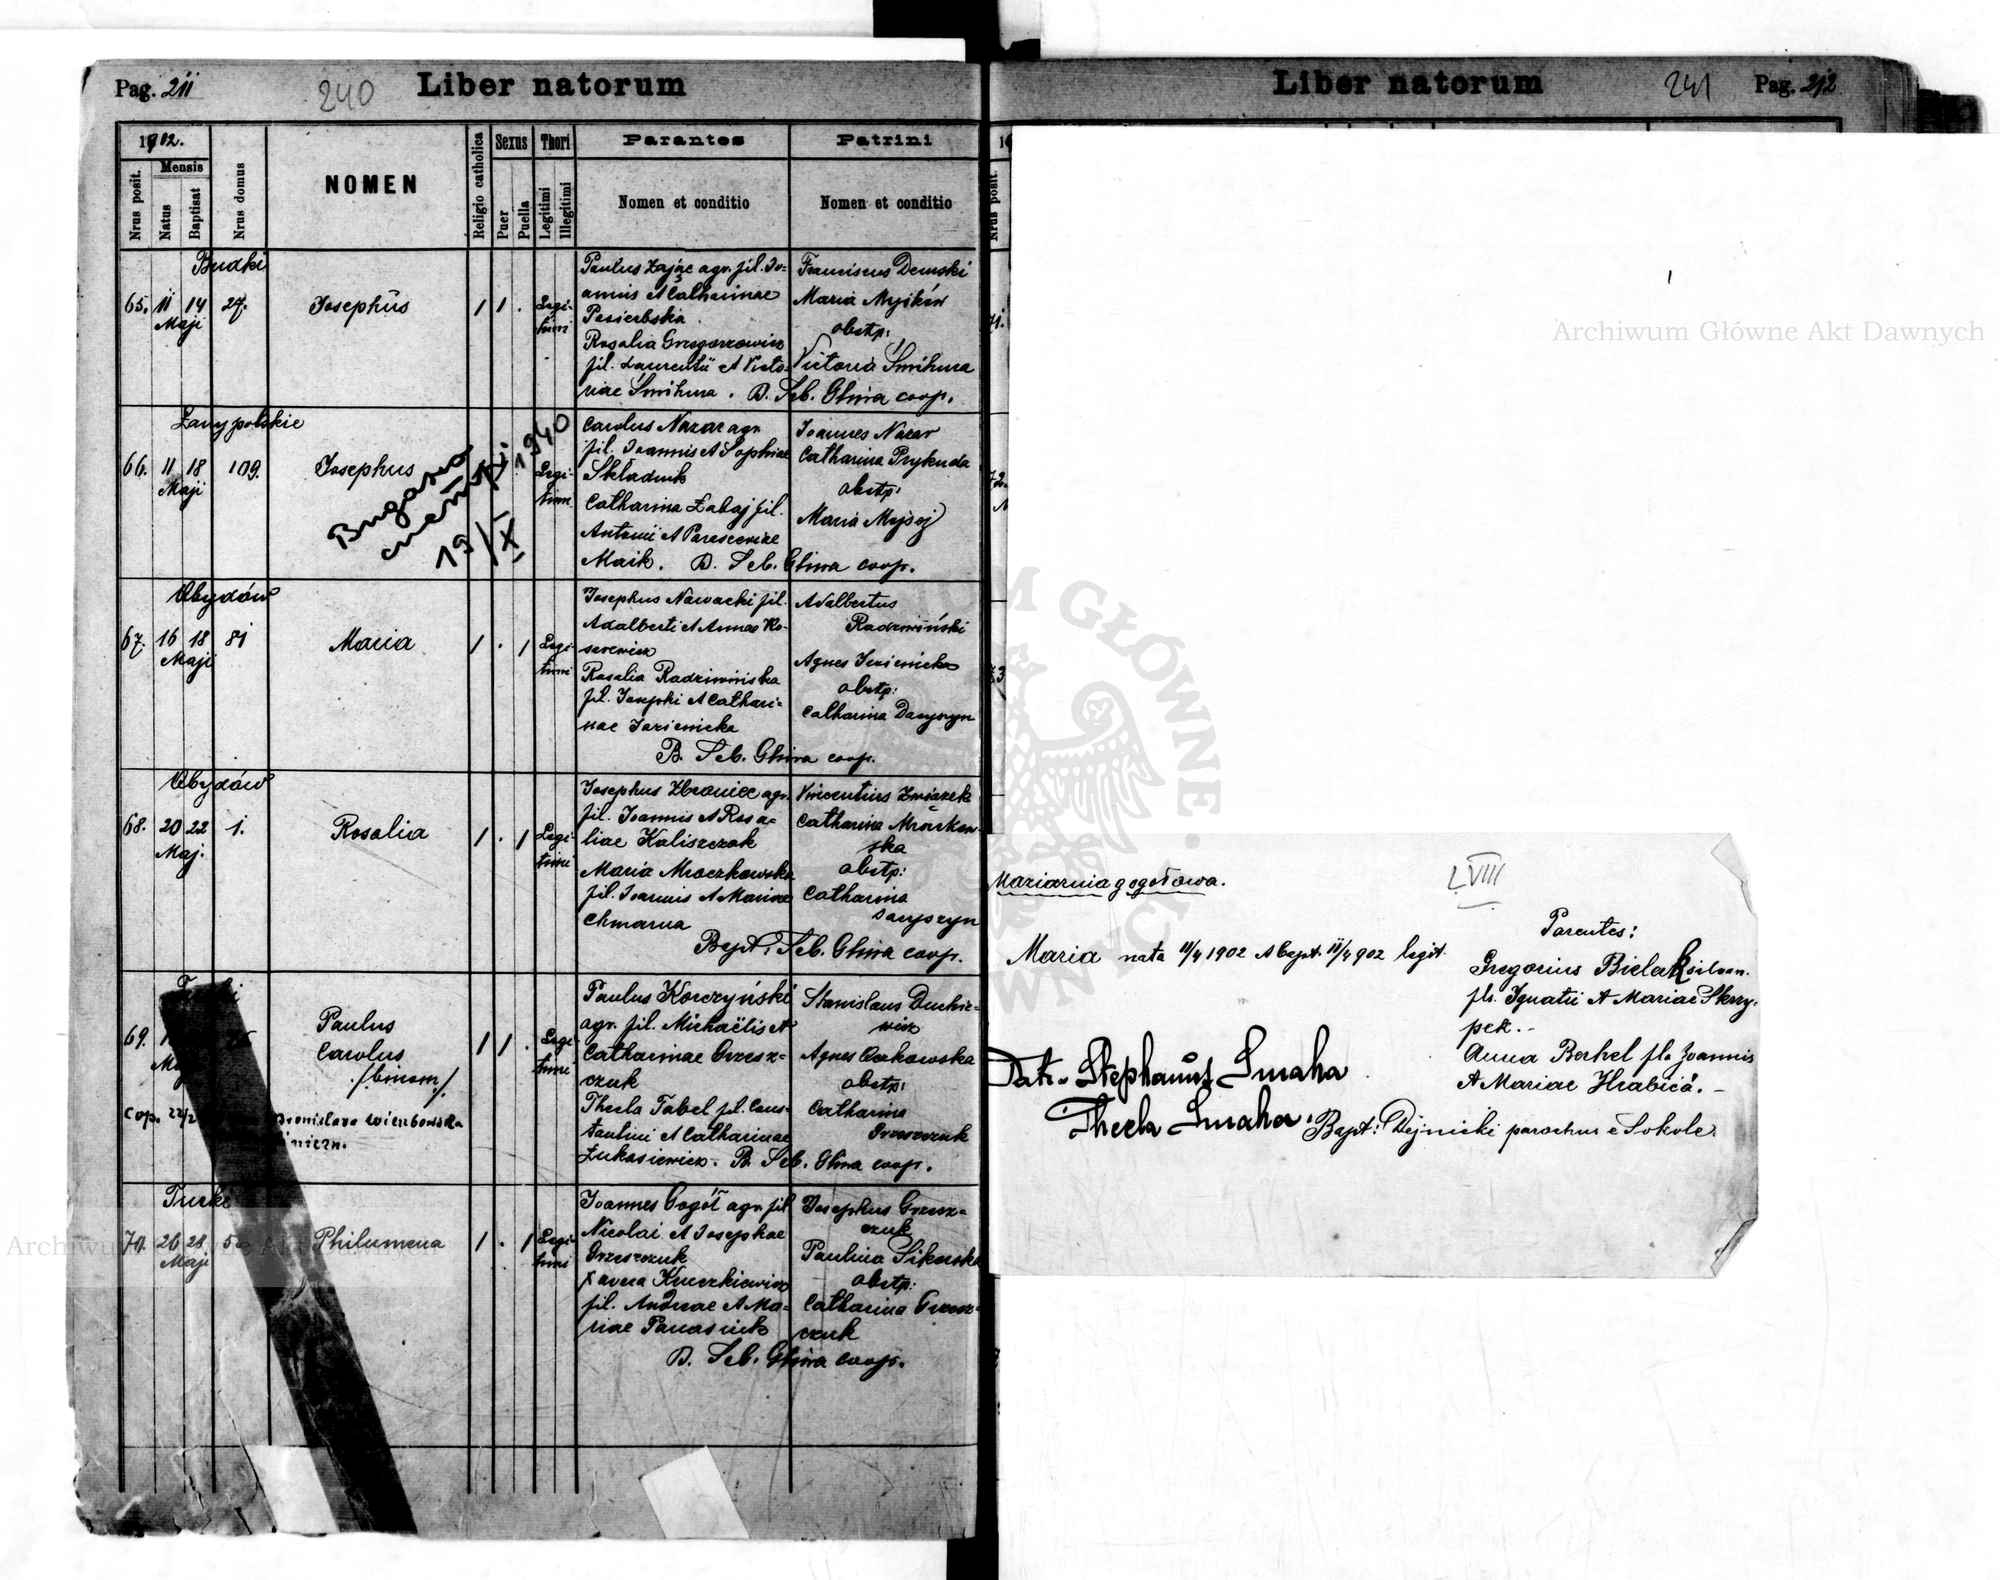 Pag. 211
240
Liber natorum
1902.
Nrus posit.
Mensis
Natus
Baptisat
Nrus domus
NOMEN
Religio catholica
Sexus
Puer
Puella
Thori
Legitimi
Illegitimi
Parantes
Nomen et conditio
Patrini
Nomen et conditio
Budki
65. 11 14 27. Josephus 1 1 . Legi-
Maji timi
Paulus Zając agr. fil. Jo-
annis & Catharinae
Pasierbska.
Rosalia Grzegorzowicz
fil. Laurentii & Victo-
riae Smihura. B. Seb. Gliwa coop.
Franciscus Demski
Maria Mysików
obstp:
Victoria Smihura
Łany polskie
66. 11 18 109. Josephus
Maji
1940
19/XI
Legi-
timi
Carolus Nazar agr.
fil. Joannis & Sophiae
Składnik
Catharina Zabaj fil.
Antonii & Parasceviae
Maik. B. Seb. Gliwa coop.
Joannes Nazar
Catharina Prykuda
obstp:
Maria Mojsej
Obydów
67. 16 18 81 Maria 1 . 1 Legi-
Maji timi
Josephus Nawacki fil.
Adalberti & Annae Ko-
sarewicz
Rosalia Radziwińska
fil. Josephi & Cathari-
nae Jazienicka
B. Seb. Gliwa coop.
Adalbertus
Radziwiński
Agnes Jazienicka
obstp:
Catharina Daryszyn
Obydów
68. 20 22 1. Rosalia 1 . 1 Legi-
Maj. timi
Josephus Zbroniec agr.
fil. Joannis & Rosa-
liae Kaliszczak
Maria Mroczkowska
fil. Joannis & Mariae
Chmarna
Bapt. Seb. Gliwa coop.
Vincentius Związek
Catharina Mroczkow-
ska
obstp:
Catharina
Daryszyn
69. Paulus 1 1 . Legi-
Carolus timi
/binom/.
Cop. 22/2 Bronislava Wierzbowska
Paulus Korczyński
agr. fil. Michaëlis &
Catharinae Grzesz-
czuk
Thecla Tabel fil. Cons-
tantini & Catharinae
Łukasiewicz. B. Seb. Gliwa coop.
Stanislaus Duchie-
wicz
Agnes Czekowska
obstp:
Catharina
Grzeszczuk
Turki
70. 26 28 5 Philumena 1 . 1 Legi-
Maji timi
Joannes Gogół agr. fil.
Nicolai & Josephae
Grzeszczuk
Xavera Kruczkiewicz
fil. Andreae & Ma-
riae Panasiuk
B. Seb. Gliwa coop.
Josephus Grzesz-
czuk
Paulina Sikorska
obstp:
Catharina Grzesz-
czuk
Liber natorum
241
Pag. 212
Nrus posit.
Archiwum Główne Akt Dawnych
LVIII
Maria nata 11/4 1902 & bapt. 11/4 902 legit.
Parentes:
Gregorius Bielak silvan.
fil. Ignatii & Mariae Skrzy-
pek. -
Anna Berhel fla Joannis
& Mariae Hrabica. -
Patr. Stephanus Smaha
Thecla Smaha.
Bapt: Dejnicki parochus e Sokole.
Archiwum Główne Akt